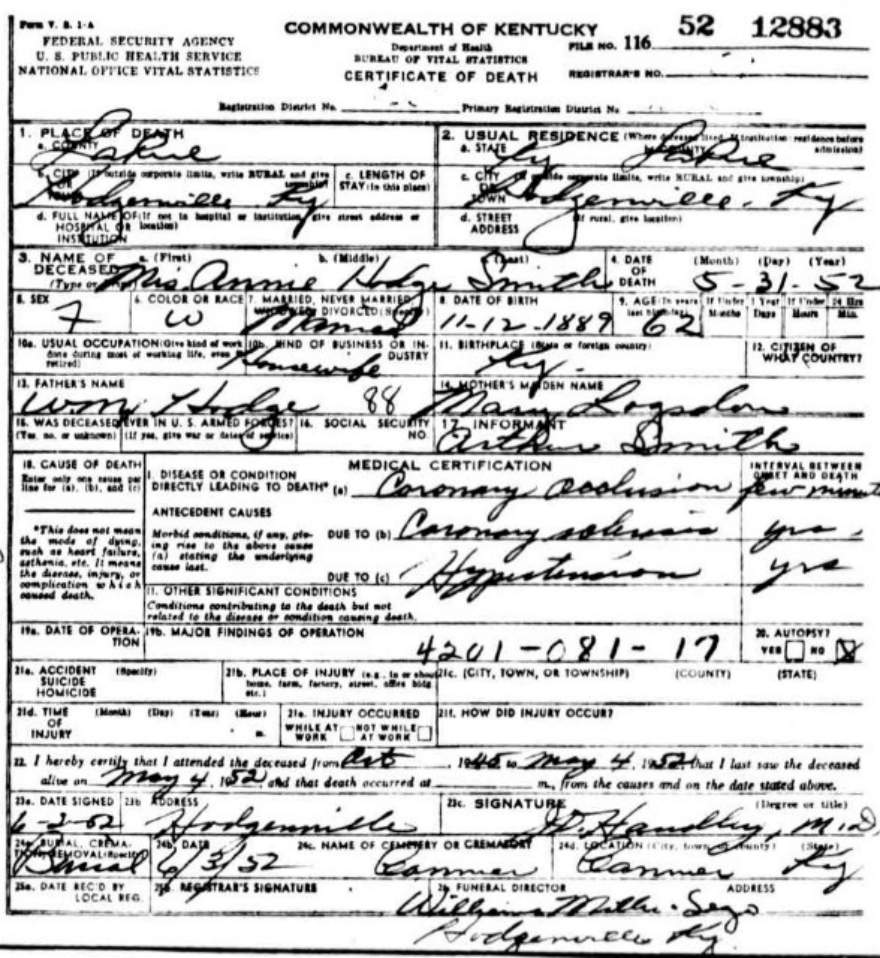 Form V. S. 1-A
FEDERAL SECURITY AGENCY
U. S. PUBLIC HEALTH SERVICE
NATIONAL OFFICE VITAL STATISTICS
COMMONWEALTH OF KENTUCKY
Department of Health
BUREAU OF VITAL STATISTICS
CERTIFICATE OF DEATH
FILE NO. 116 52 12883
REGISTRAR'S NO.
Registration District No. Primary Registration District No.
1. PLACE OF DEATH
a. COUNTY Larue
2. USUAL RESIDENCE (Where deceased lived. If institution: residence before admission)
a. STATE Ky b. COUNTY Larue
b. CITY (If outside corporate limits, write RURAL and give township) OR TOWN Hodgenville Ky
c. LENGTH OF STAY (in this place)
c. CITY (If outside corporate limits, write RURAL and give township) OR TOWN Hodgenville. Ky
d. FULL NAME OF (If not in hospital or institution, give street address or location) HOSPITAL OR INSTITUTION
d. STREET ADDRESS (If rural, give location)
3. NAME OF DECEASED (Type or Print) a. (First) b. (Middle) c. (Last)
Mrs. Annie Hodge Smith
4. DATE OF DEATH (Month) (Day) (Year)
5-31-52
5. SEX F
6. COLOR OR RACE W
7. MARRIED, NEVER MARRIED, WIDOWED, DIVORCED (Specify) Married
8. DATE OF BIRTH 11-12-1889
9. AGE (In years last birthday) 62
If Under 1 Year Months Days
If Under 24 Hrs Hours Min.
10a. USUAL OCCUPATION (Give kind of work done during most of working life, even if retired) Housewife
10b. KIND OF BUSINESS OR INDUSTRY
11. BIRTHPLACE (State or foreign country) Ky.
12. CITIZEN OF WHAT COUNTRY?
13. FATHER'S NAME
Wm Hodge 88
14. MOTHER'S MAIDEN NAME
Mary Logsdon
15. WAS DECEASED EVER IN U. S. ARMED FORCES? (Yes, no, or unknown) (If yes, give war or dates of service)
16. SOCIAL SECURITY NO.
17. INFORMANT
Arthur Smith
18. CAUSE OF DEATH
Enter only one cause per line for (a), (b), and (c)
MEDICAL CERTIFICATION
INTERVAL BETWEEN ONSET AND DEATH
I. DISEASE OR CONDITION DIRECTLY LEADING TO DEATH* (a) Coronary Occlusion few minutes
*This does not mean the mode of dying, such as heart failure, asthenia, etc. It means the disease, injury, or complication which caused death.
ANTECEDENT CAUSES
Morbid conditions, if any, giving rise to the above cause (a) stating the underlying cause last.
DUE TO (b) Coronary sclerosis yrs
DUE TO (c) Hypertension yrs
II. OTHER SIGNIFICANT CONDITIONS
Conditions contributing to the death but not related to the disease or condition causing death.
19a. DATE OF OPERATION
19b. MAJOR FINDINGS OF OPERATION
4201-081-17
20. AUTOPSY? YES NO X
21a. ACCIDENT SUICIDE HOMICIDE (Specify)
21b. PLACE OF INJURY (e.g., in or about home, farm, factory, street, office bldg etc.)
21c. (CITY, TOWN, OR TOWNSHIP) (COUNTY) (STATE)
21d. TIME OF INJURY (Month) (Day) (Year) (Hour) m.
21e. INJURY OCCURRED WHILE AT WORK NOT WHILE AT WORK
21f. HOW DID INJURY OCCUR?
22. I hereby certify that I attended the deceased from Oct, 1945 to May 4, 1952, that I last saw the deceased
alive on May 4, 1952, and that death occurred at m., from the causes and on the date stated above.
23a. DATE SIGNED 6-2-52
23b ADDRESS Hodgenville
23c. SIGNATURE (Degree or title)
Handley, M.D
24a. BURIAL, CREMATION, REMOVAL (Specify) Burial
24b. DATE 6/3/52
24c. NAME OF CEMETERY OR CREMATORY Canmer
24d. LOCATION (City, town, or county) (State) Canmer Ky
25a. DATE REC'D BY LOCAL REG.
25b. REGISTRAR'S SIGNATURE
26 FUNERAL DIRECTOR ADDRESS
Hodgenville Ky.